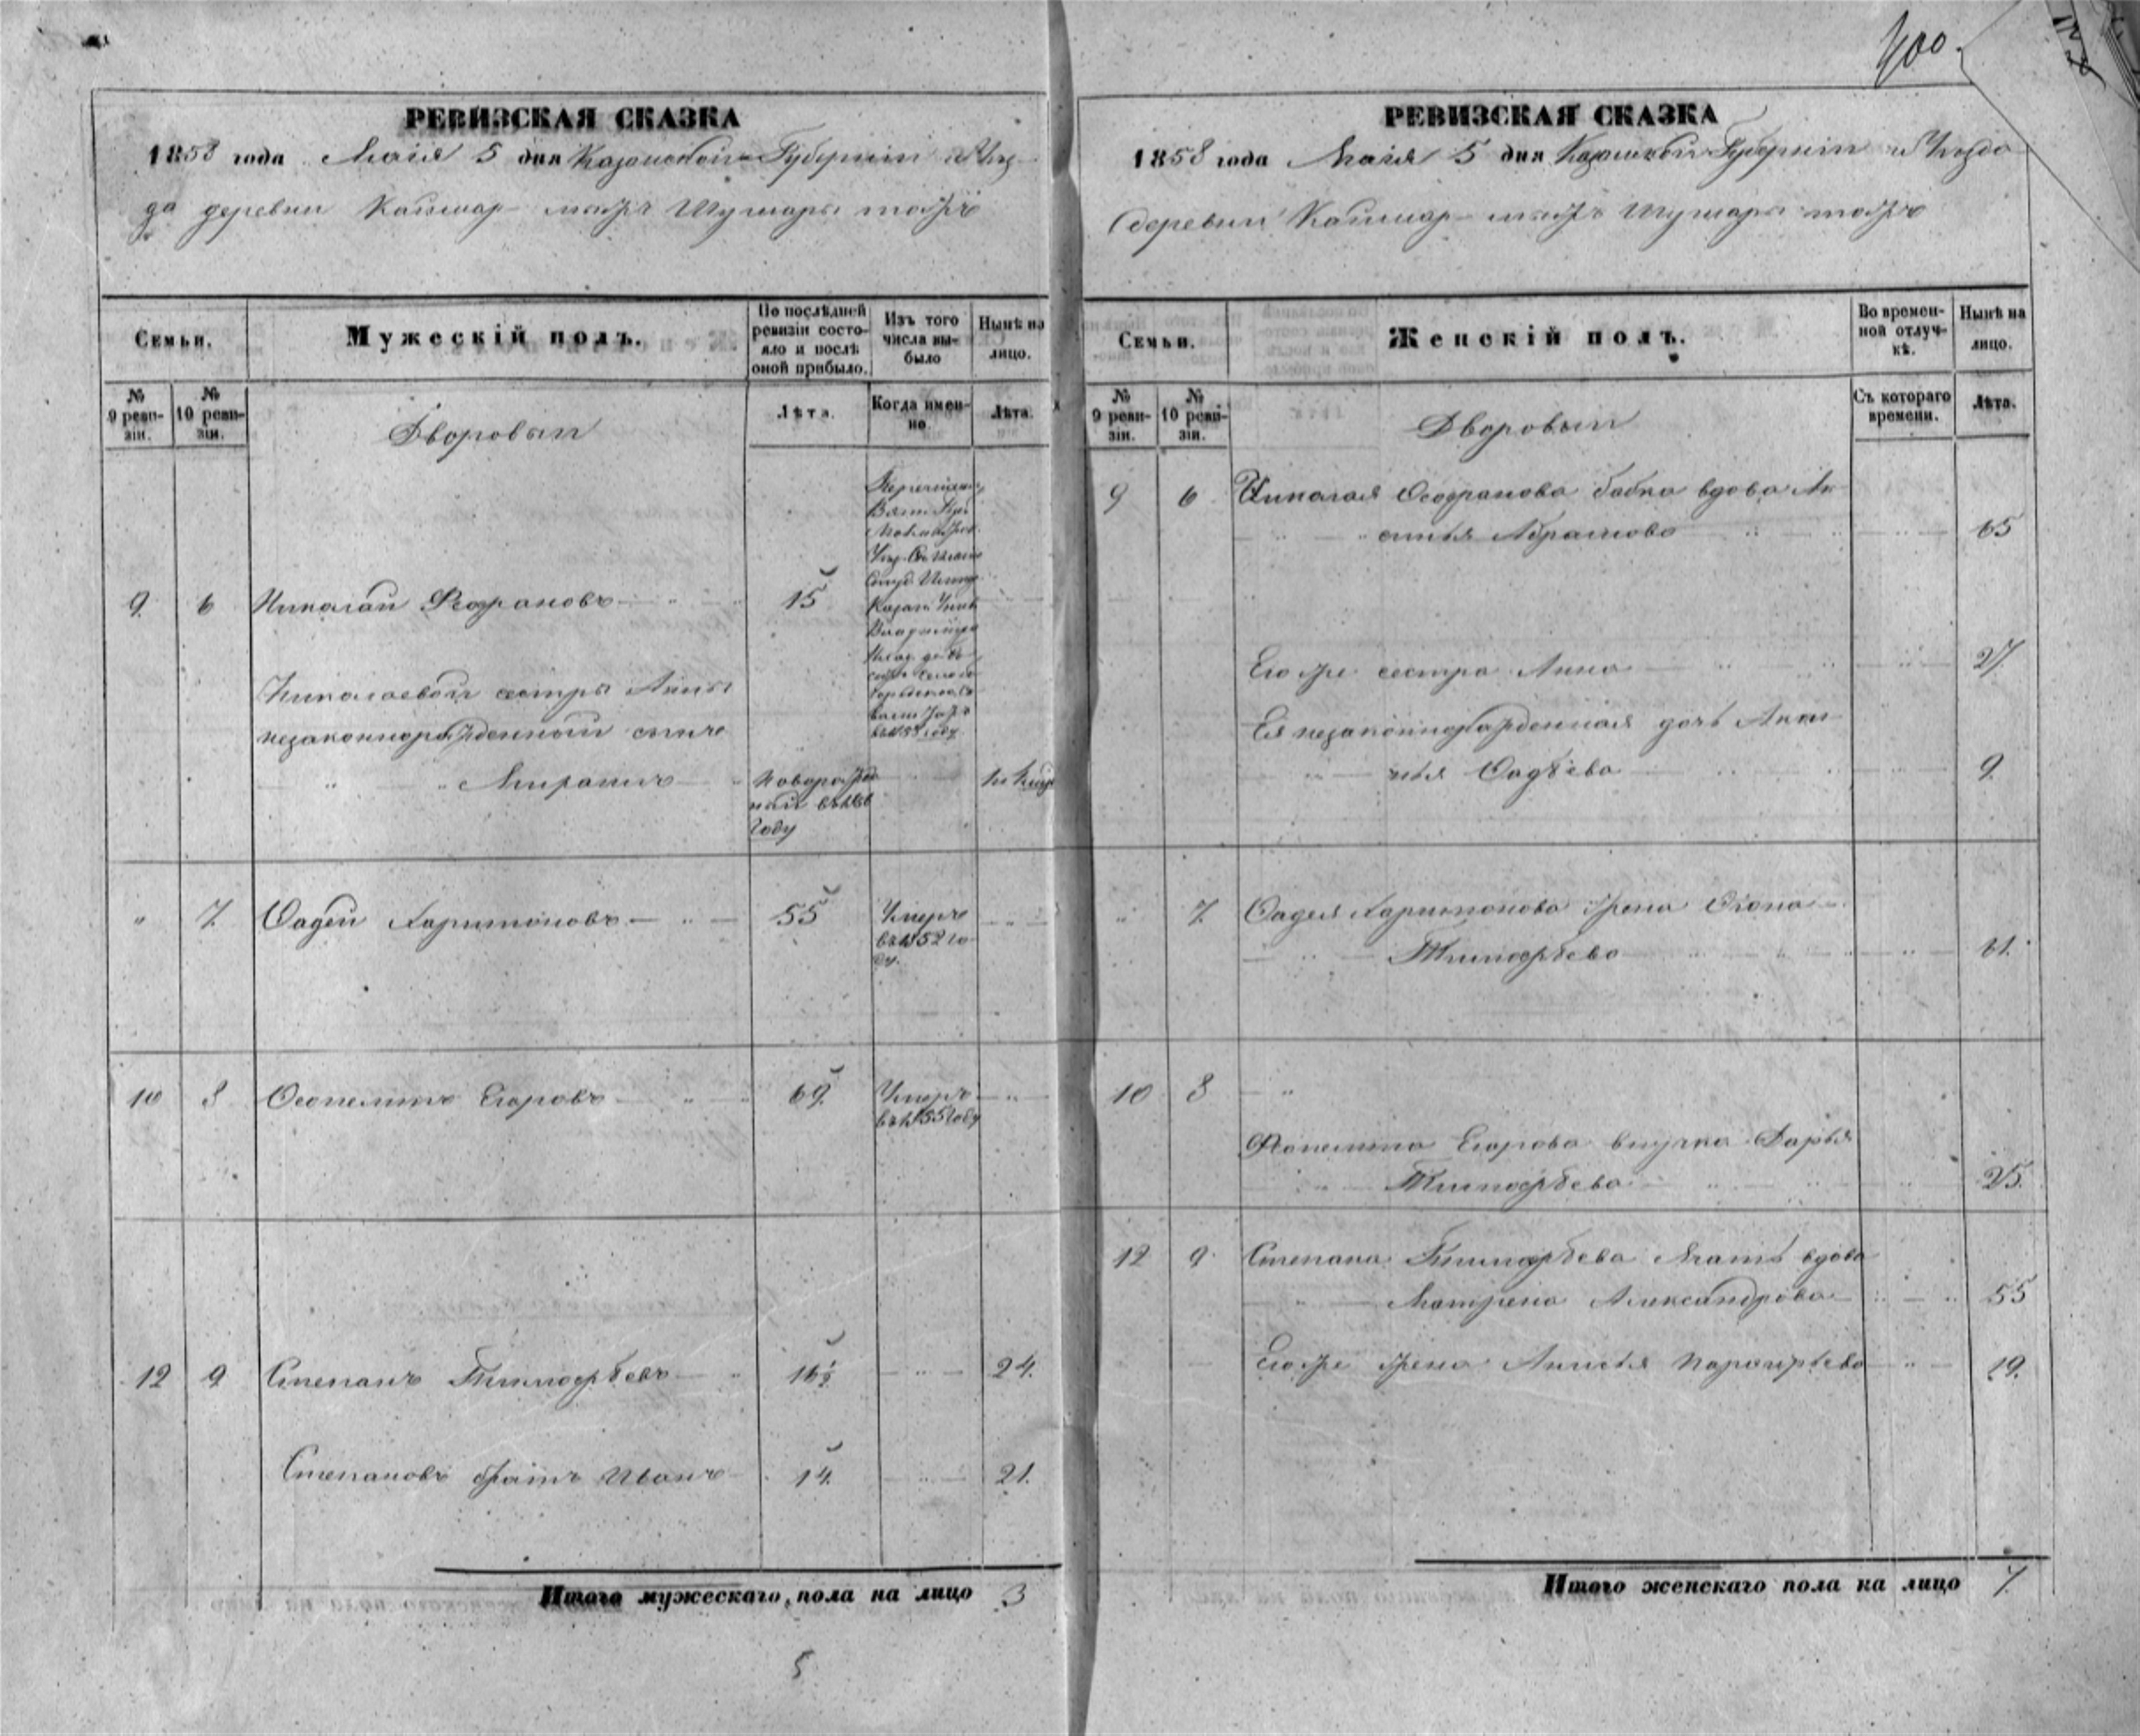 400.
РЕВИЗСКАЯ СКАЗКА
1858 года Маія 5 дня Казанской Губерніи и Уѣз-
да деревни Каймар тожъ
Семьи.
Мужескій полъ.
По послѣдней ревизіи состояло и послѣ оной прибыло.
Изъ того числа выбыло
Нынѣ на лицо.
№ 9 ревизіи.
№ 10 ревизіи.
Дворовыи
Лѣта.
Когда именно.
Лѣта.
9. 6 Николай Феофановъ 15
Николаевой сестры Анны
незаконнорожденный сынъ
Миронъ
Новорожден
ный въ
году
" 7. Фадей Харитоновъ 55 Умеръ
въ 1852 го
ду.
10 8 Феопемптъ Егоровъ 69. Умеръ
въ 1855 году
12 9 Степанъ Тимофѣевъ 16½ 24.
Степановъ братъ Иванъ 14. 21.
Итого мужескаго пола на лицо 3
5
РЕВИЗСКАЯ СКАЗКА
1858 года Маія 5 дня Казанской Губерніи и Уѣзда
деревни Каймар тожъ
Семьи.
Женскій полъ.
Во временной отлучкѣ.
Нынѣ на лицо.
№ 9 ревизіи.
№ 10 ревизіи.
Дворовыи
Съ котораго времени.
Лѣта.
9 6 Николая Феофанова бабка вдова
Абрамова 65
Его же сестра Анна 27.
Ея незаконнорожденная дочь
Фадѣева 9.
" 7. Фадея Харитонова жена
Тимофѣева 61.
10 8 "
Феопемпта Егорова внучка Дарья
Тимофѣева 25.
12 9 Степана Тимофѣева Мать вдова
Матрена Александрова 55
Его же жена 19.
Итого женскаго пола на лицо 7